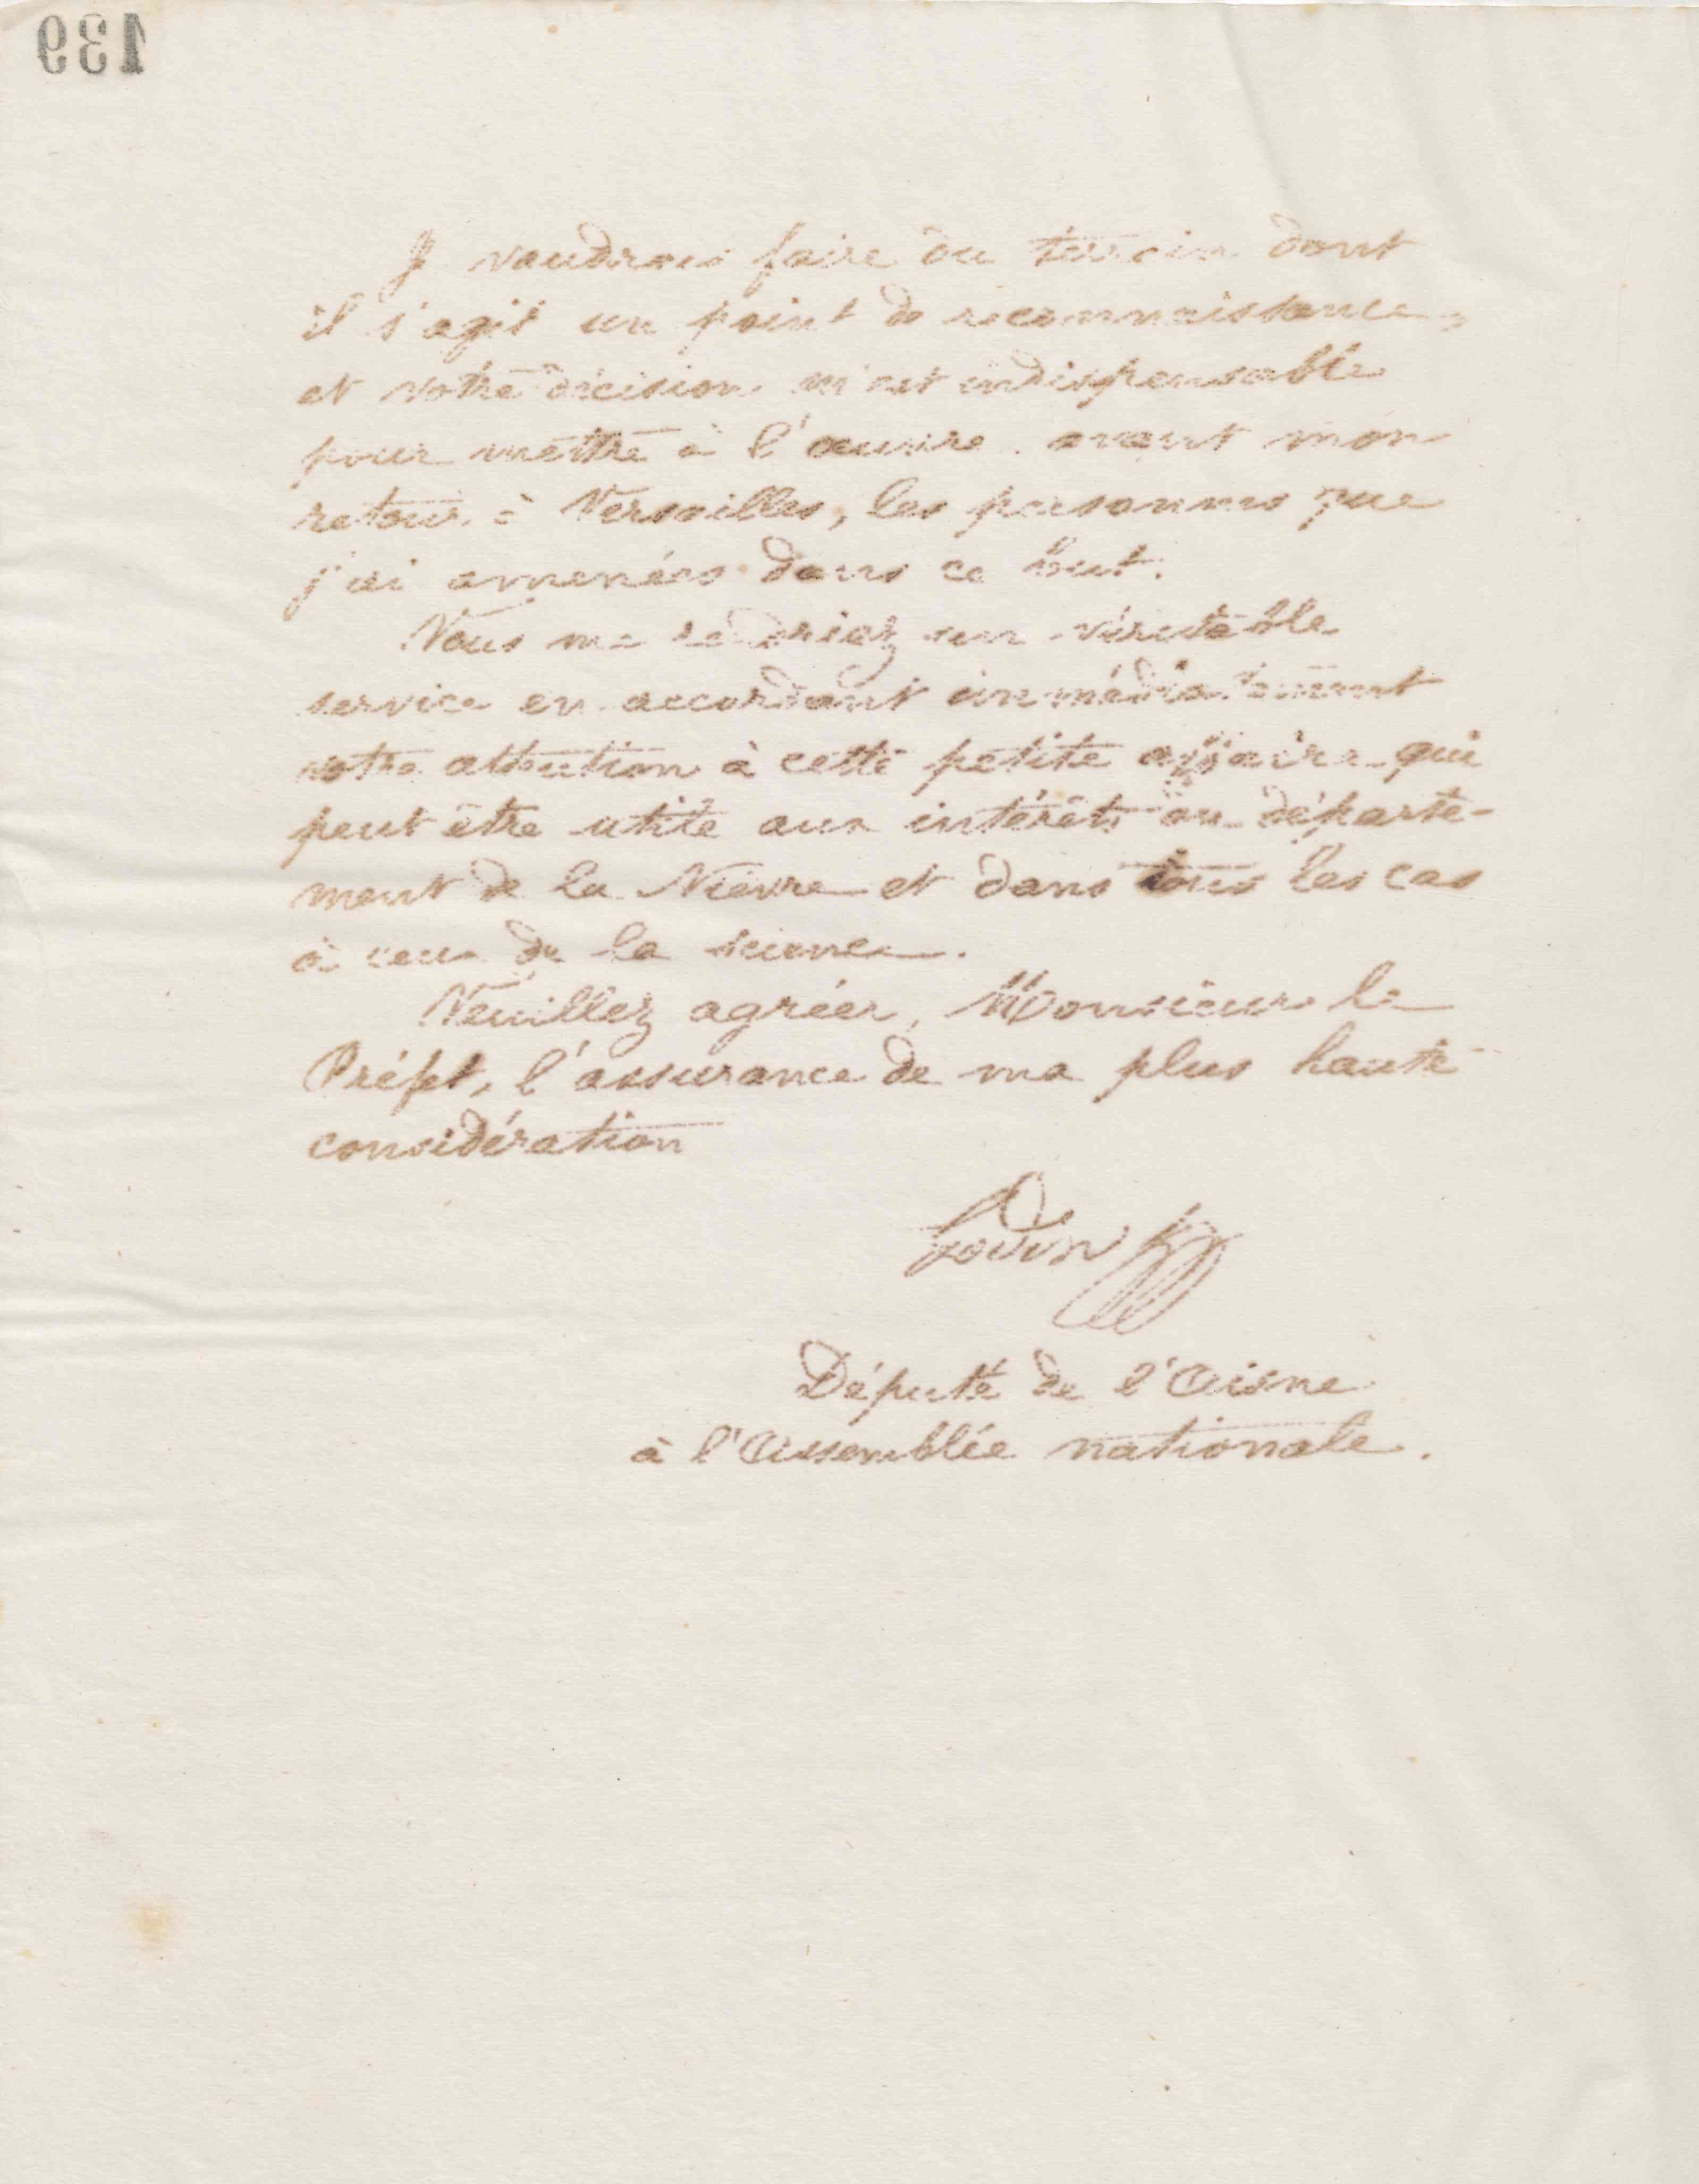 139
Je voudrais faire du terrain dont
il s'agit un point de reconnaissance,
et votre décision m'est indispensable
pour mettre à l'œuvre, avant mon
retour à Versailles, les personnes que
j'ai amenées dans ce but.
Vous me rendriez un véritable
service en accordant immédiatement
votre attention à cette petite affaire qui
peut être utile aux intérêts du départe-
ment de la Nièvre et dans tous les cas
à ceux de la science.
Veuillez agréer, Monsieur le
Préfet, l'assurance de ma plus haute
considération
Godin
Député de l'Aisne
à l'Assemblée nationale.